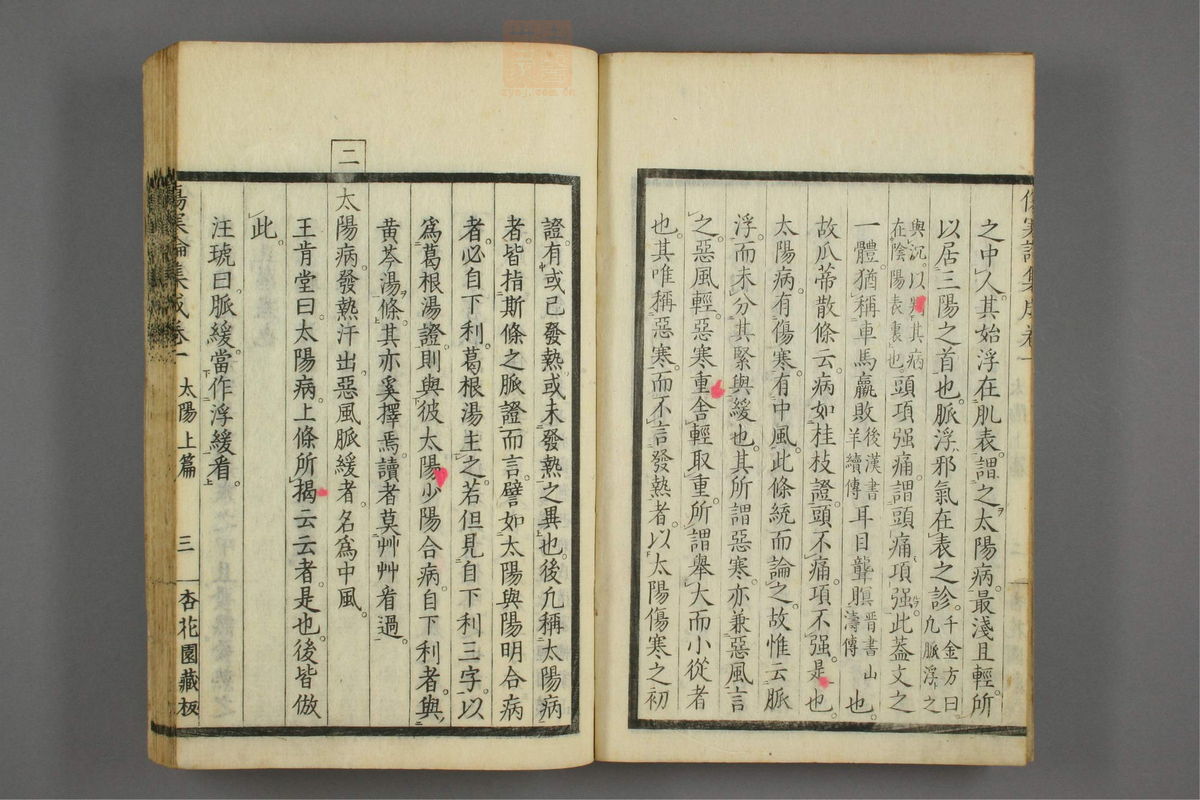 之中人其始浮在肌表謂之太陽病最淺且輕所
以居三陽之首也脈浮邪氣在表之診千金方曰凡脈浮之
與沉以判其病在陰陽表裏也頭項强痛謂頭痛項强此蓋文之
一體猶稱車馬羸敗後漢書羊續傳耳目聾瞑晉書山濤傳也
故瓜蒂散條云病如桂枝證頭不痛項不强是也
太陽病有傷寒有中風此條統而論之故惟云脈
浮而未分其緊與緩也其所謂惡寒亦兼惡風言
之惡風輕惡寒重舍輕取重所謂舉大而小從者
也其唯稱惡寒而不言發熱者以太陽傷寒之初
證有或已發熱或未發熱之異也後凡稱太陽病
者皆指斯條之脈證而言譬如太陽與陽明合病
者必自下利葛根湯主之若但見自下利三字以
爲葛根湯證則與彼太陽少陽合病自下利者與
黄芩湯條其亦奚擇焉讀者莫艸艸看過
二
太陽病發熱汗出惡風脈緩者名爲中風
王肯堂曰太陽病上條所揭云云者是也後皆倣
此
汪琥曰脈緩當作浮緩看
傷寒論集成卷一 太陽上篇 三 杏花園藏板